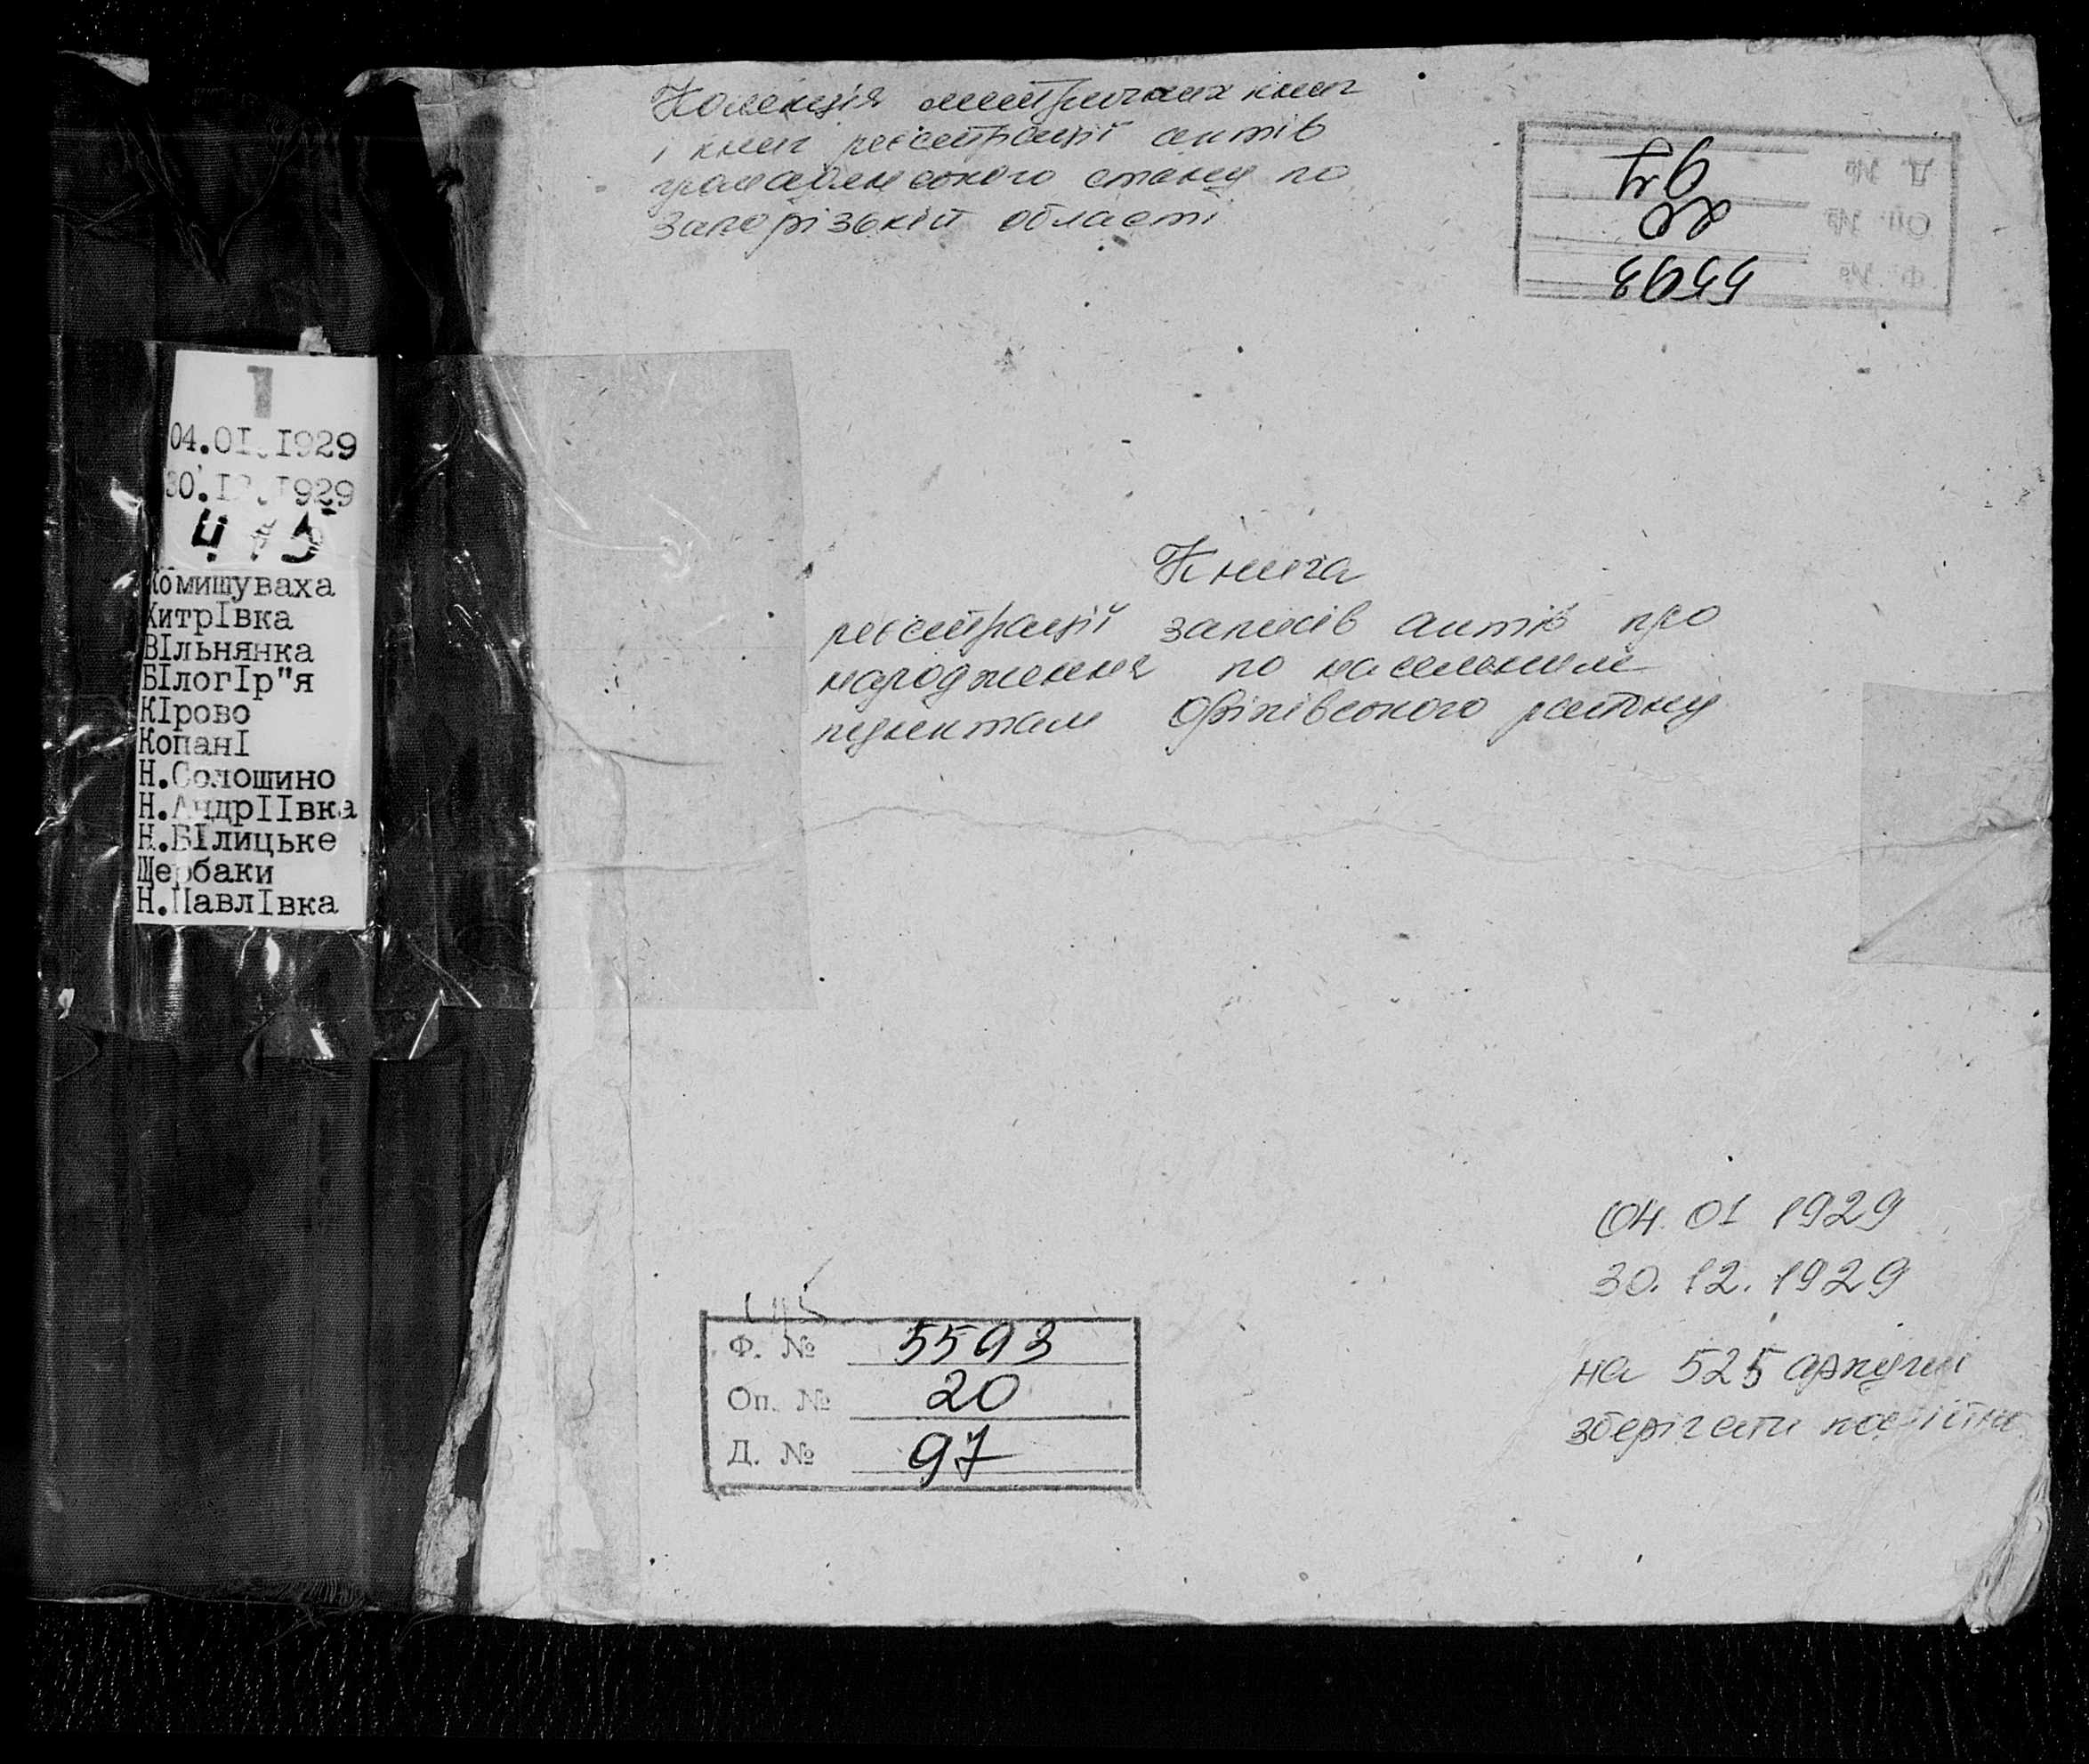 Колекція метричних книг
і книг реєстрації актів
громадянського стану по
Запорізькій області
Д. №
97
Оп. №
20
Ф. №
5593
1
04.OI.I929
30.I2.I929
Комишуваха
ХитрІвка
ВІльнянка
БІлогІр"я
КІрово
КопанІ
Н.Солошино
Н.АндрІІвка
Н.БІлицьке
Щербаки
Н.ПавлІвка
Книга
реєстрації записів актів про
народження по населеним
пунктам Оріхівського району
04.01 1929
30.12.1929
на 525 аркушах
зберігати постійно
Ф. № 5593
Оп. № 20
Д. № 97